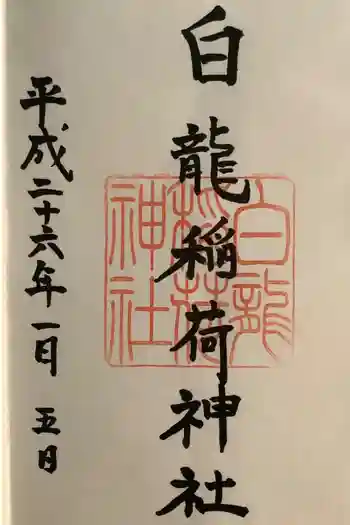 白龍稲荷神社
白龍
稲荷
神社
平成二十六年一日 五日